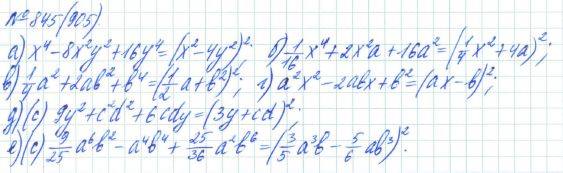 №845(905).
а) x⁴-8x²y²+16y⁴=(x²-4y²)²; б) 1/16 x⁴+2x²a+16a²=(1/4 x²+4a)²;
в) 1/4 a²+2ab²+b⁴=(1/2 a+b²)²; г) a²x²-2abx+b²=(ax-b)²;
д) (с) 9y²+c²d²+6cdy=(3y+cd)².
е) (с) 9/25 a⁶b²-a⁴b⁴+25/36 a²b⁶=(3/5 a³b-5/6 ab³)²